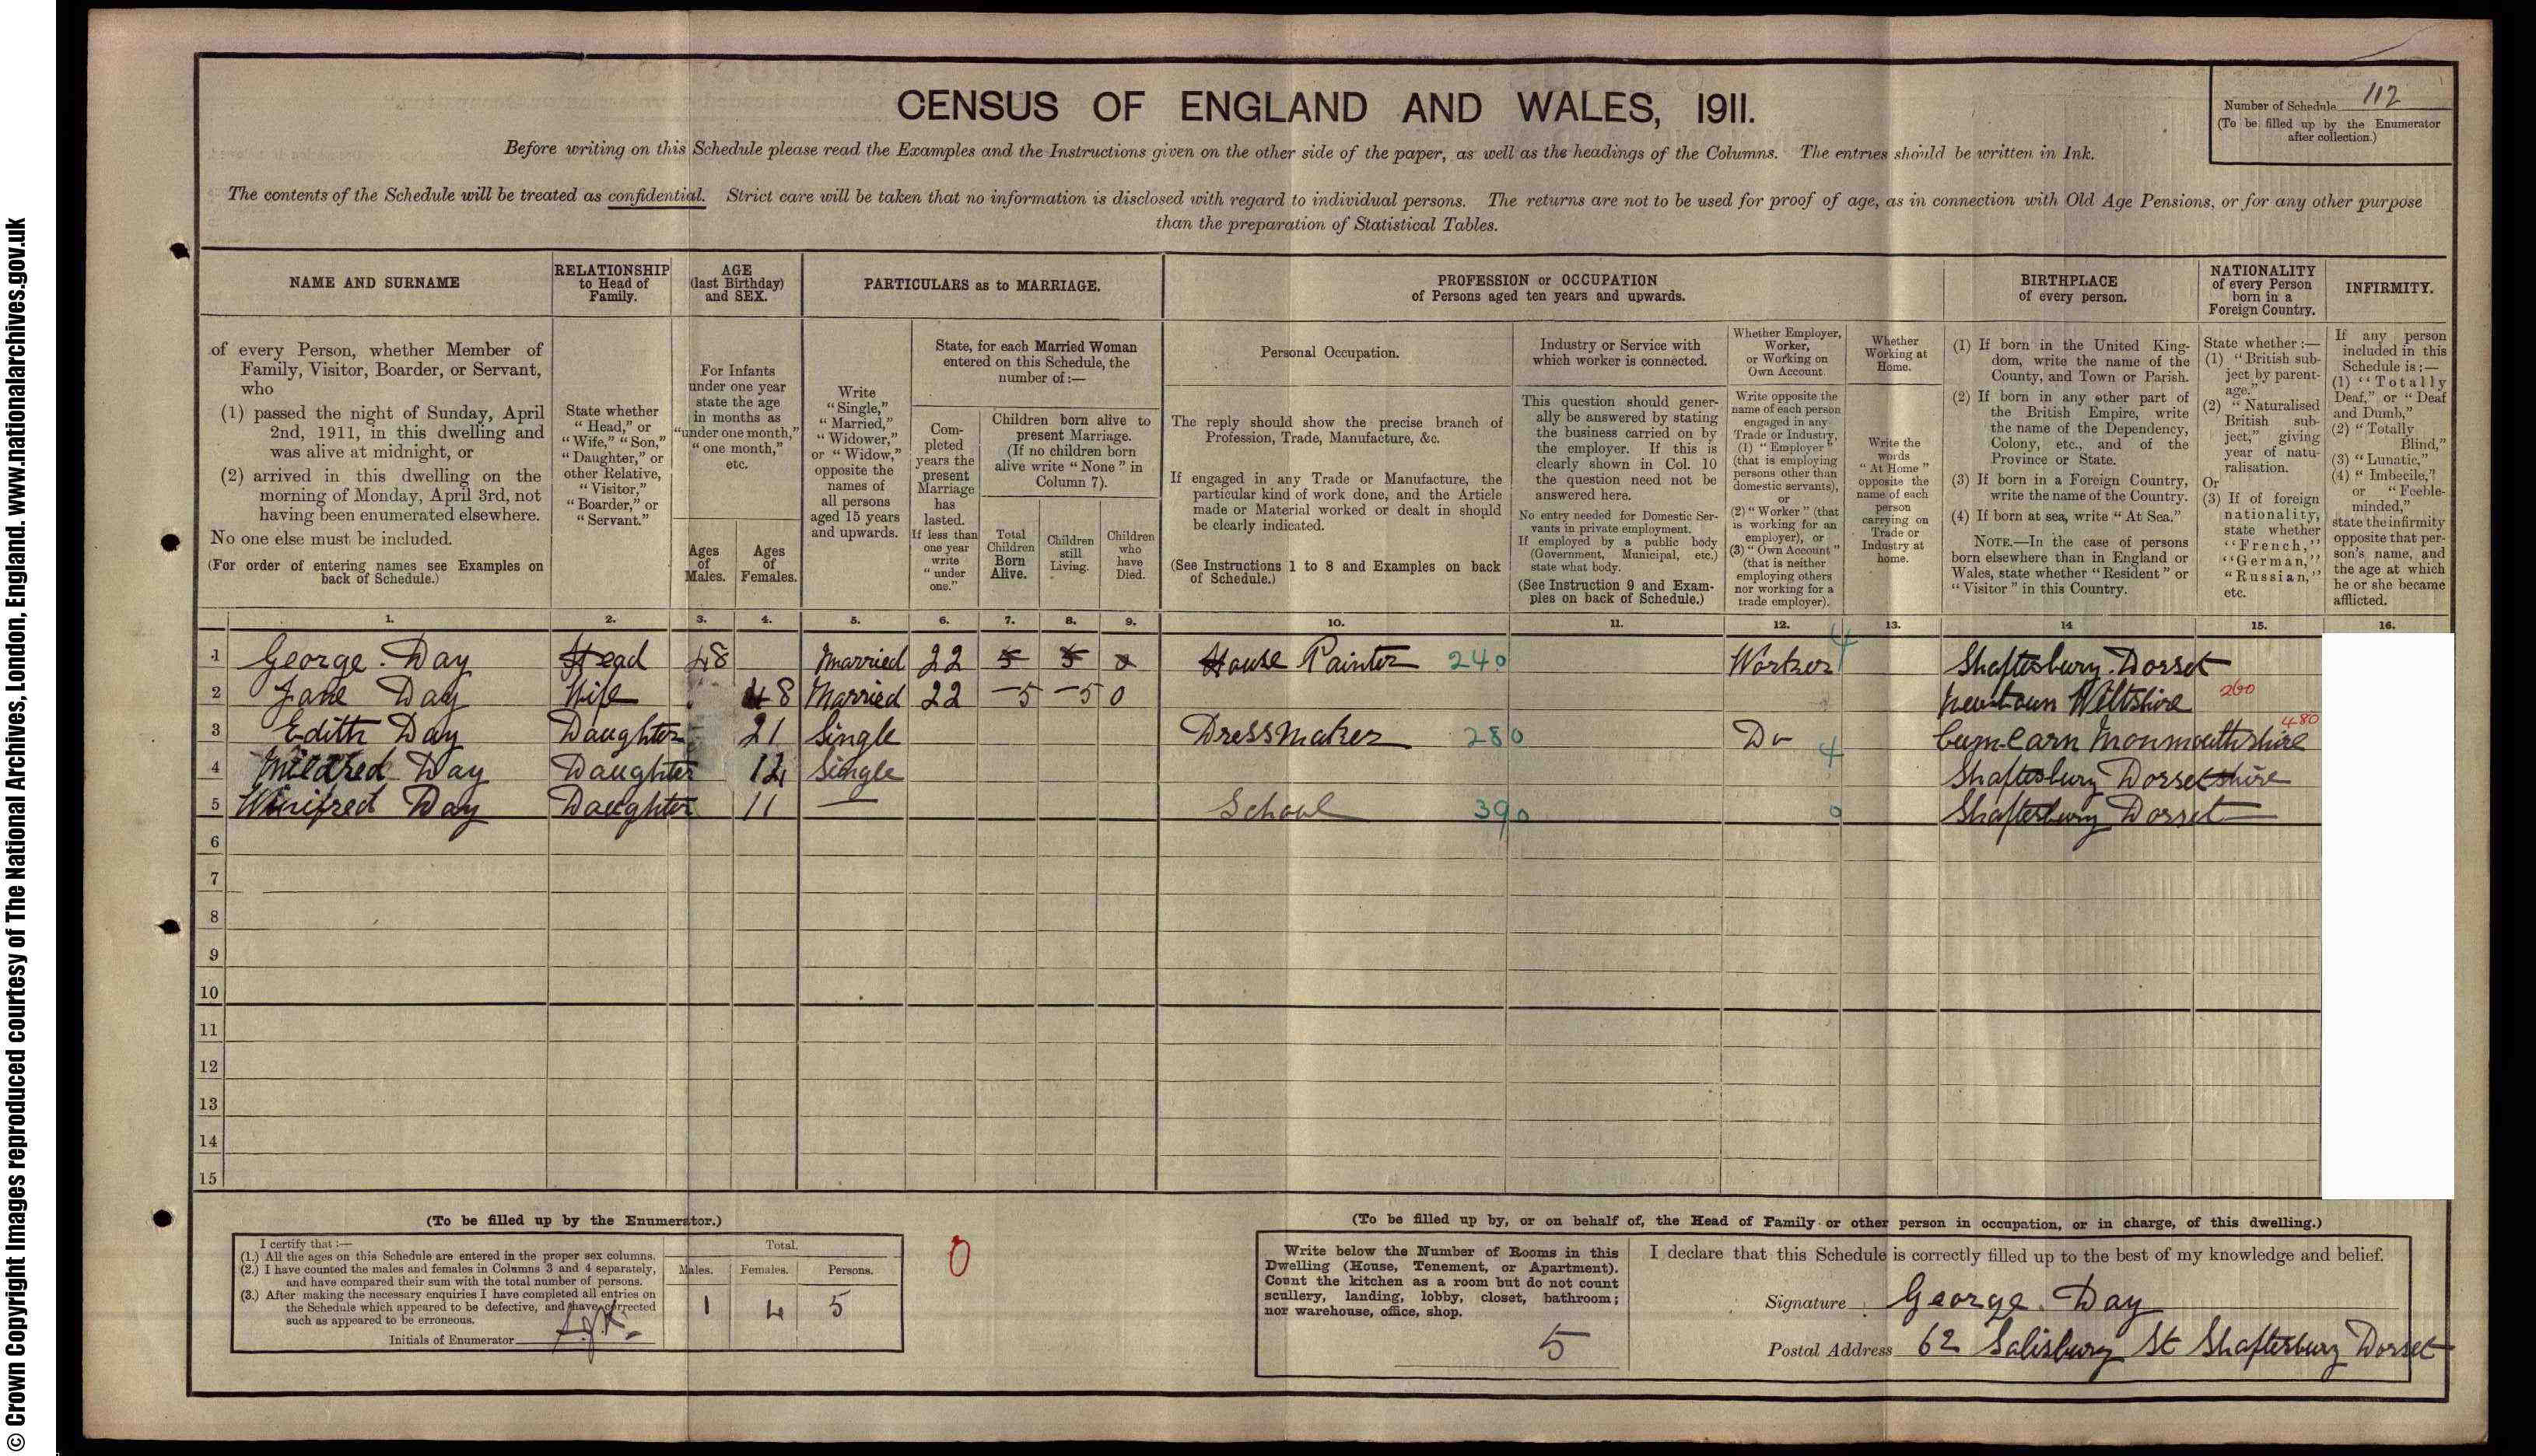 CENSUS OF ENGLAND AND WALES, 1911.
Number of Schedule 112
(To be filled up by the Enumerator
after collection.)
Before writing on this Schedule please read the Examples and the Instructions given on the other side of the paper, as well as the headings of the Columns. The entries should be written in Ink.
The contents of the Schedule will be treated as confidential. Strict care will be taken that no information is disclosed with regard to individual persons. The returns are not to be used for proof of age, as in connection with Old Age Pensions, or for any other purpose
than the preparation of Statistical Tables.
NAME AND SURNAME
of every Person, whether Member of
Family, Visitor, Boarder, or Servant,
who
(1) passed the night of Sunday, April
2nd, 1911, in this dwelling and
was alive at midnight, or
(2) arrived in this dwelling on the
morning of Monday, April 3rd, not
having been enumerated elsewhere.
No one else must be included.
(For order of entering names see Examples on
back of Schedule.)
RELATIONSHIP
to Head of
Family.
State whether
"Head," or
"Wife," "Son,"
"Daughter," or
other Relative,
"Visitor,"
"Boarder," or
"Servant."
AGE
(last Birthday)
and SEX.
For Infants
under one year
state the age
in months as
"under one month,"
"one month,"
etc.
Ages
of
Males.
Ages
of
Females.
PARTICULARS as to MARRIAGE.
Write
"Single,"
"Married,"
"Widower,"
or "Widow,"
opposite the
names of
all persons
aged 15 years
and upwards.
State, for each Married Woman
entered on this Schedule, the
number of:—
Com-
pleted
years the
present
Marriage
has
lasted.
If less than
one year
write
"under
one."
Children born alive to
present Marriage.
(If no children born
alive write "None" in
Column 7).
Total
Children
Born
Alive.
Children
still
Living.
Children
who
have
Died.
PROFESSION or OCCUPATION
of Persons aged ten years and upwards.
Personal Occupation.
The reply should show the precise branch of
Profession, Trade, Manufacture, &c.
If engaged in any Trade or Manufacture, the
particular kind of work done, and the Article
made or Material worked or dealt in should
be clearly indicated.
(See Instructions 1 to 8 and Examples on back
of Schedule.)
Industry or Service with
which worker is connected.
This question should gener-
ally be answered by stating
the business carried on by
the employer. If this is
clearly shown in Col. 10
the question need not be
answered here.
No entry needed for Domestic Ser-
vants in private employment.
If employed by a public body
(Government, Municipal, etc.)
state what body.
(See Instruction 9 and Exam-
ples on back of Schedule.)
Whether Employer,
Worker,
or Working on
Own Account.
Write opposite the
name of each person
engaged in any
Trade or Industry,
(1) "Employer"
(that is employing
persons other than
domestic servants),
or
(2) "Worker" (that
is working for an
employer), or
(3) "Own Account"
(that is neither
employing others
nor working for a
trade employer).
Whether
Working at
Home.
Write the
words
"At Home"
opposite the
name of each
person
carrying on
Trade or
Industry at
home.
BIRTHPLACE
of every person.
(1) If born in the United King-
dom, write the name of the
County, and Town or Parish.
(2) If born in any other part of
the British Empire, write
the name of the Dependency,
Colony, etc., and of the
Province or State.
(3) If born in a Foreign Country,
write the name of the Country.
(4) If born at sea, write "At Sea."
NOTE.—In the case of persons
born elsewhere than in England or
Wales, state whether "Resident" or
"Visitor" in this Country.
NATIONALITY
of every Person
born in a
Foreign Country.
State whether:—
(1) "British sub-
ject by parent-
age."
(2) "Naturalised
British sub-
ject," giving
year of natu-
ralisation.
Or
(3) If of foreign
nationality,
state whether
"French,"
"German,"
"Russian,"
etc.
INFIRMITY.
If any person
included in this
Schedule is:—
(1) "Totally
Deaf," or "Deaf
and Dumb,"
(2) "Totally
Blind,"
(3) "Lunatic,"
(4) "Imbecile,"
or "Feeble-
minded,"
state the infirmity
opposite that per-
son's name, and
the age at which
he or she became
afflicted.
1. 2. 3. 4. 5. 6. 7. 8. 9. 10. 11. 12. 13. 14 15. 16.
1 George Day Head 48 Married 22 5 5 0 House Painter 240 Worker 4 Shaftesbury Dorset
2 Jane Day Wife 48 Married 22 5 5 0 Newtown Wiltshire 260
3 Edith Day Daughter 21 Single Dressmaker 280 Do 4 Cumcarn Monmouthshire 480
4 Mildred Day Daughter Single Shaftesbury Dorsetshire
5 Winifred Day Daughter 11 — School 390 0 Shaftesbury Dorset
6
7
8
9
10
11
12
13
14
15
(To be filled up by the Enumerator.)
I certify that:—
(1.) All the ages on this Schedule are entered in the proper sex columns.
(2.) I have counted the males and females in Columns 3 and 4 separately,
and have compared their sum with the total number of persons.
(3.) After making the necessary enquiries I have completed all entries on
the Schedule which appeared to be defective, and have corrected
such as appeared to be erroneous.
Initials of Enumerator
Total.
Males. Females. Persons.
1 4 5
0
(To be filled up by, or on behalf of, the Head of Family or other person in occupation, or in charge, of this dwelling.)
Write below the Number of Rooms in this
Dwelling (House, Tenement, or Apartment).
Count the kitchen as a room but do not count
scullery, landing, lobby, closet, bathroom;
nor warehouse, office, shop.
5
I declare that this Schedule is correctly filled up to the best of my knowledge and belief.
Signature George Day
Postal Address 62 Salisbury St Shaftesbury Dorset
© Crown Copyright Images reproduced courtesy of The National Archives, London, England. www.nationalarchives.gov.uk